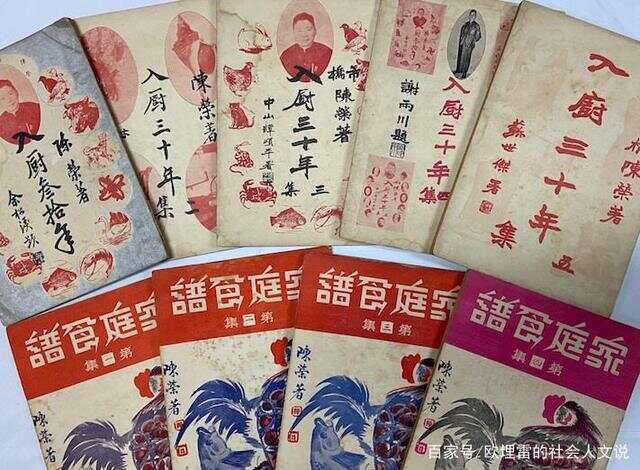 陳榮著
入厨叁拾年
陳榮著
入厨三十年
二集
市橋陳榮著
入厨三十年
三集
入厨三十年
四集
謝雨川題
陳榮著
入厨三十年
五集
蘇世傑署
家庭食譜
第一集
陳榮著
家庭食譜
第二集
陳榮著
家庭食譜
第三集
陳榮著
家庭食譜
第四集
陳榮著
百家号/欧埋雷的社会人文说